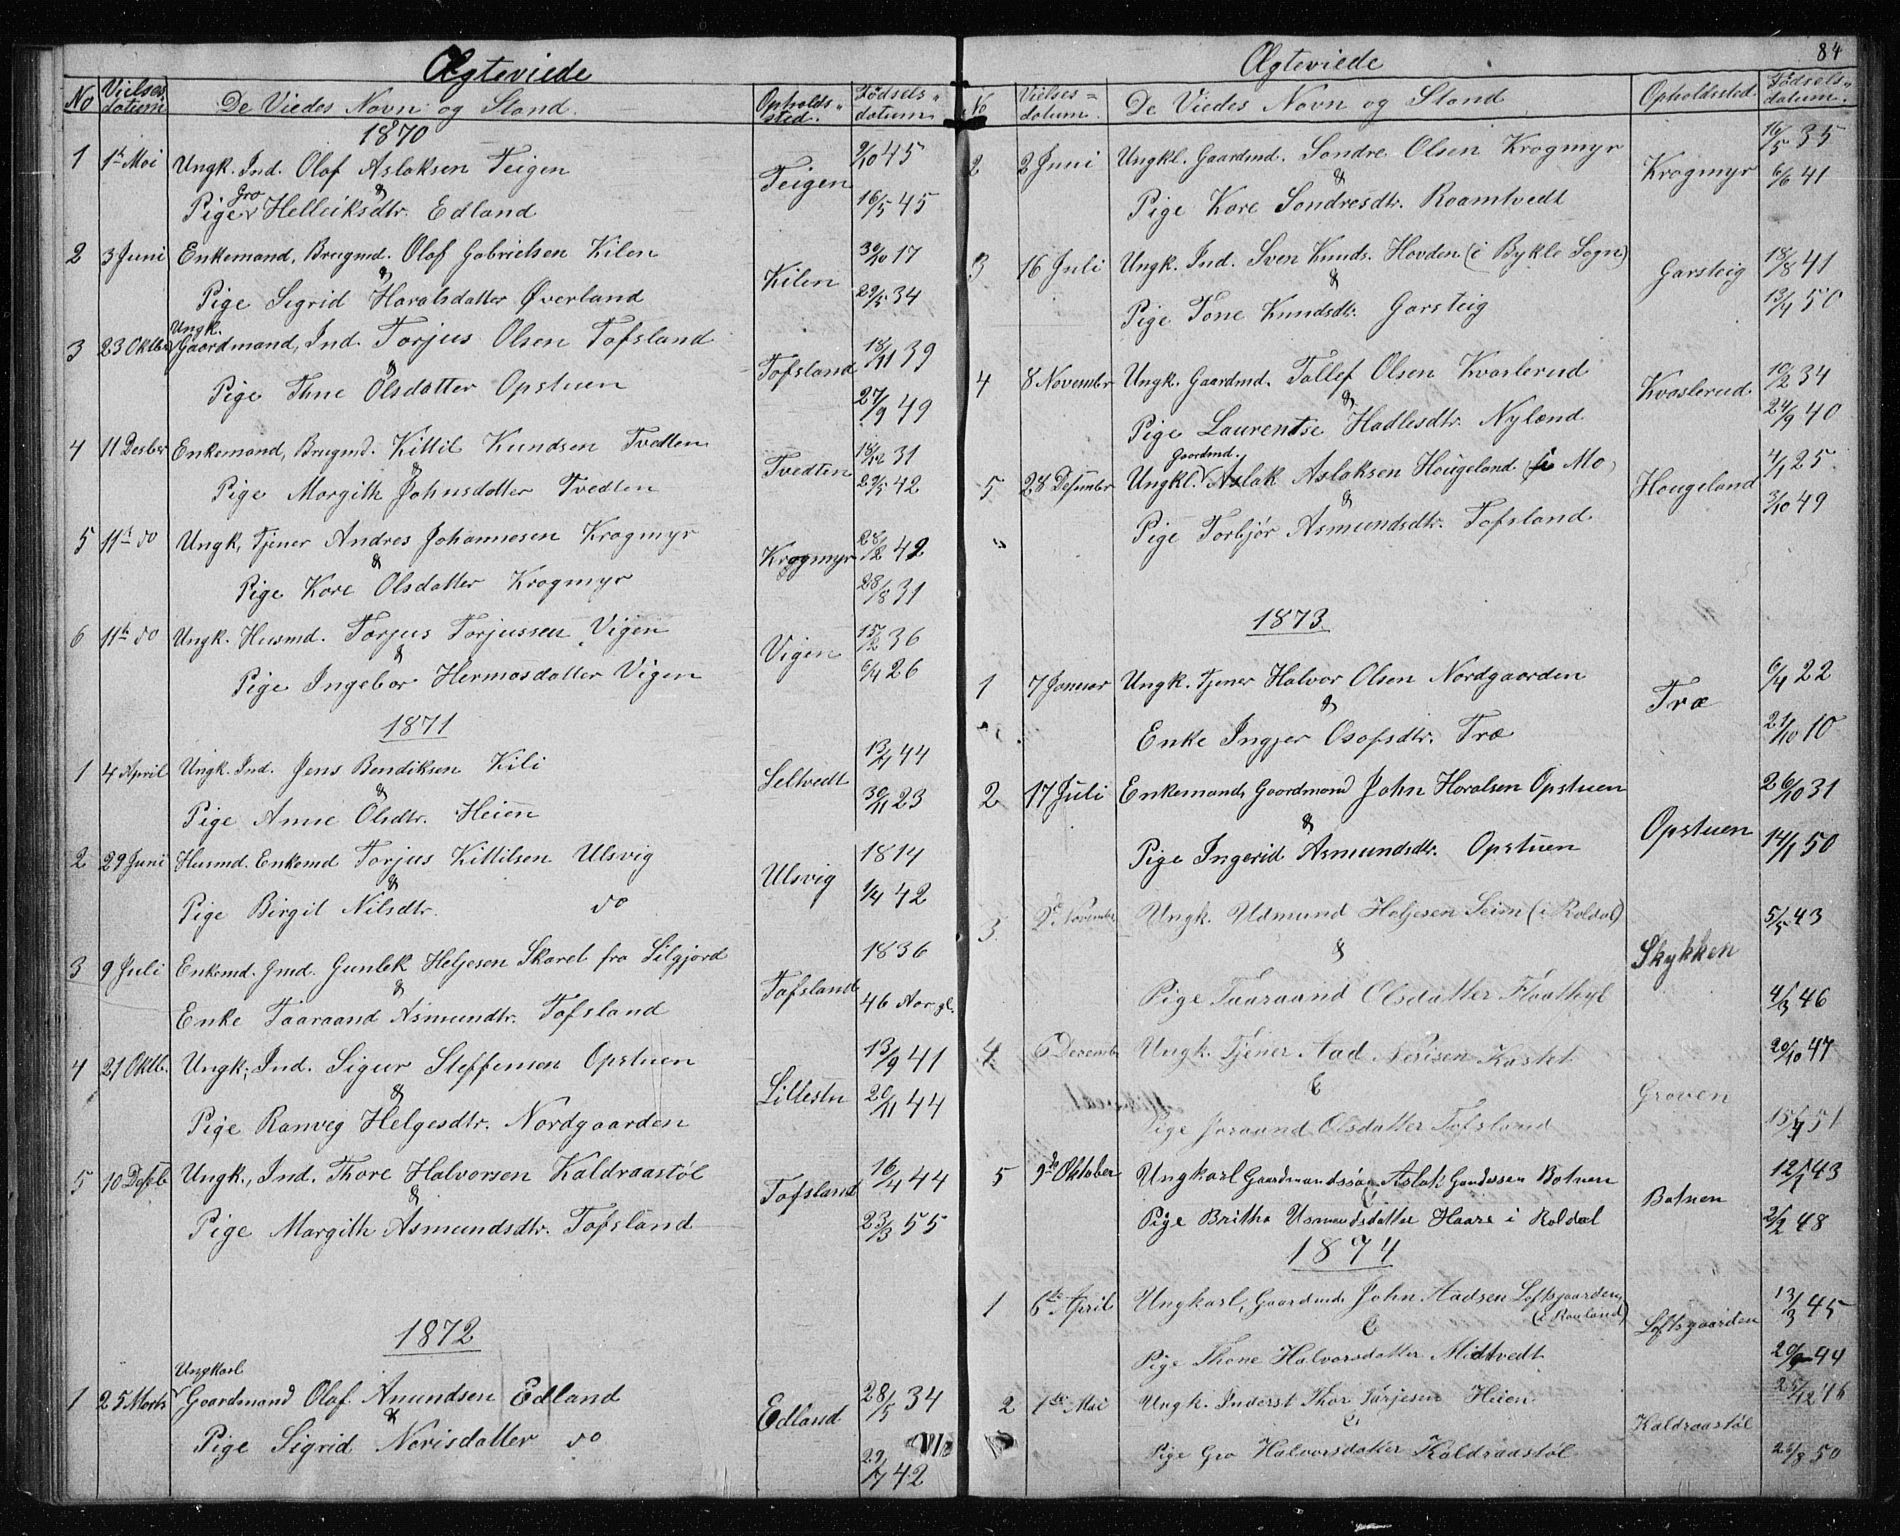 Ægteviede
No Vielses datum De Viedes Navn og Stand. Opholds- sted. Fødsels- datum
1870
1 1te Mai Ungk. Ind. Olaf Aslaksen Teigen 9/10 45
& Teigen
Pige Gro Helleiksdtr. Edland 16/5 45
2 3 Juni Enkemand, Brugmd. Olaf Gabrielsen Kilen 30/10 17
& Kilen
Pige Sigrid Haralsdatter Øverland 29/5 34
3 23 Oktbr Ungk. Gaardmand, Ind. Torjus Olsen Tofsland 18/11 39
& Tofsland
Pige Thne Olsdatter Opstuen 27/9 49
4 11 Desbr Enkemand, Brugmd. Kittil Knudsen Tvedten 31
& Tvedten
Pige Margith Johnsdatter Tvedten 29/5 42
5 11te do Ungk, Tjener Andres Johannesen Krogmyr 28/2 42
& Krogmyr
Pige Kare Olsdatter Krogmyr 28/8 31
6 11te do Ungk. Husmd. Torjus Torjussen Vigen 15/2 36
& Vigen
Pige Ingebor Hermosdatter Vigen 6/4 26
1871
1 4 April Ungk. Ind. Jens Bendiksen Kili 44
& Seltvedt
Pige Anne Olsdtr. Heien 30/11 23
2 29 Juni Husmd. Enkemd Torjus Kittilsen Ulsvig 1814
& Ulsvig
Pige Birgit Nilsdtr. do 1/4 42
3 9 Juli Enkemd. Gmd. Gunlek Heljesen Skaret fra Siljord 1836
& Tofsland
Enke Taaraand Asmundtr. Tofsland 46 Aar gl.
4 21 Oktb. Ungk; Ind. Sigur Steffensen Opstuen 13/9 41
& Lillestu
Pige Ranveg Helgesdtr. Nordgaarden 20/11 44
5 10 Desb Ungk., Ind. Thore Halvorsen Kaldraastøl 16/4 44
& Tofsland
Pige Margith Asmundsdtr. Tofsland 23/3 55
1872
Ungkarl
1 25 Marts Gaardmand Olaf Amundsen Edland 28/5 34
& Edland
Pige Sigrid Nerisdatter do 29/7 42
84
Ægteviede
No Vielses- datum. De Viedes Navn og Stand Opholdssted Fødsels- datum.
2 2 Juni Ungkl. Gaardmd. Sondre Olsen Krogmyr 16/5 35
& Krogmyr
Pige Kare Sondresdtr. Raamtvedt 6/6 41
3 16 Juli Ungk. Ind. Sven Knuds. Hovden (i Bykle Sogn) 18/8 41
& Garsteig
Pige Tone Knudsdtr. Garsteig 13/4 50
4 8 Novembr Ungk. Gaardmd. Tallef Olsen Kvaslerud 10/2 34
& Kvaslerud
Pige Laurentse Hadlesdtr. Nyland 24/9 40
Gaardmd.
5 28 Desembr Ungkl. Aslak Aslaksen Hougeland (i Mo) 4/1 25
& Hougeland
Pige Torbjør Asmundsdtr. Tofsland 3/10 49
1873
1 7 Januar Ungk. Tjener Halvor Olsen Nordgaarden 6/4 22
& Træ
Enke Ingjer Osofsdtr. Træ 21/10 10
2 17 Juli Enkemand, Gaardmand John Haralsen Opstuen 26/10 31
& Opstuen
Pige Ingerid Asmundsdtr. Opstuen 14/1 50
3. 2d November Ungk. Udmund Heljesen Seim (i Roldal) 5/5 43
& Skykken
Pige Taaraand Olsdatter Flaathyl 4/3 46
4. 6 Decemb Ungk. Tjener Aad Nerisen Kastet 20/10 47
& Groven
Pige Joraand Olsdatter Tofsland 15/4 51
5 9de Oktober Ungkarl Gaardmandssøn Aslak Gundersen Botnen 12/1 43
Botnen
Pige Britha Usmundsdatter Haare i Roldal 2/2 48
1874
1 6te April Ungkarl, Gaardmd John Aadsen Loftsgaarden (i Rauland) 13/3 45
& Loftsgaarden
Pige Thone Halvorsdatter Midtvedt 20/9 44
2 1ste Mai Ungk. Inderst Thor Tarjesen Heien 25/12 46
& Kaldraastøl
Pige Gro Halvorsdatter Kaldraastøl 26/8 50